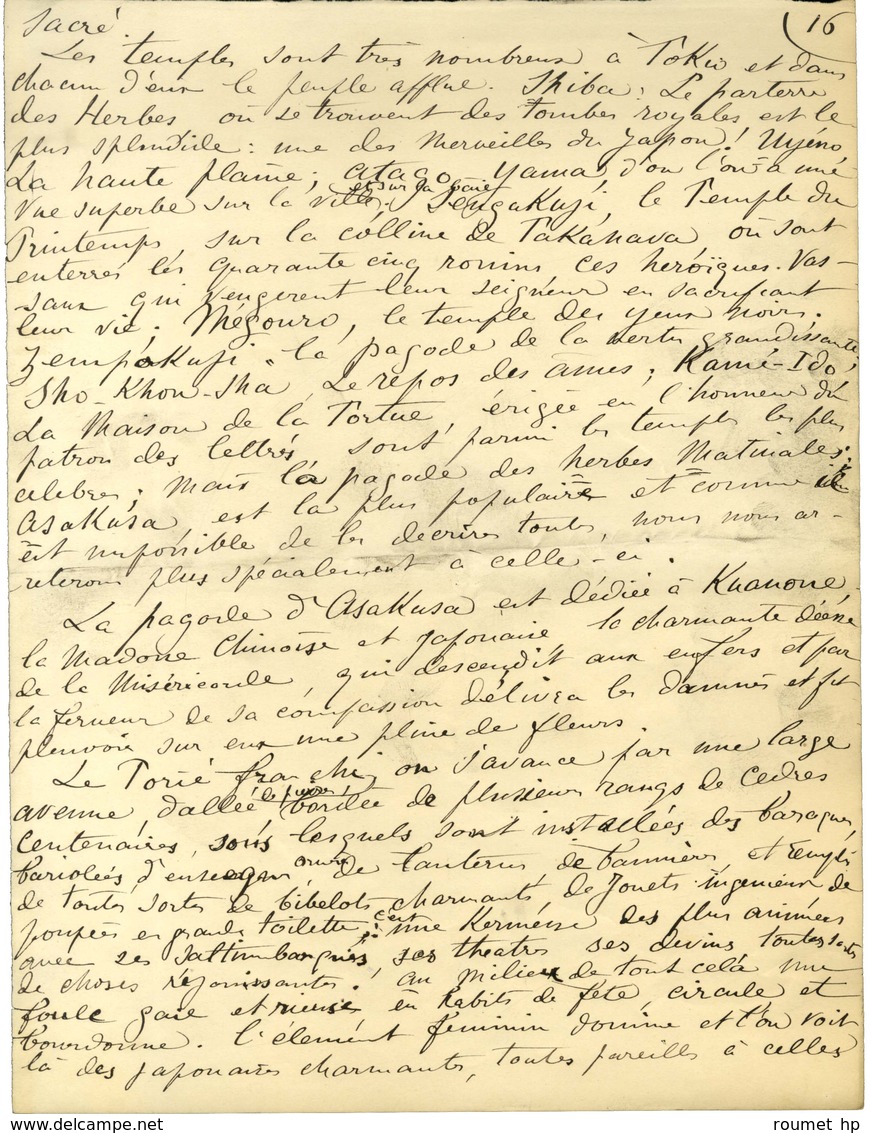 16
sacré.
Les temples sont très nombreux à Tokio et dans
chacun d'eux le peuple afflue. Shiba: Le parterre
des Herbes où se trouvent des tombes royales est le
plus splendide: une des merveilles du Japon! Uyéno,
La haute plaine; Atago Yama, d'où l'on a une
vue superbe sur la ville et sur la baie; Sengakuji, le Temple du
Printemps, sur la colline de Takanava où sont
enterrés les quarante cinq ronins ces héroïques Vas-
saux qui vengerent leur seigneur en sacrifiant
leur vie. Mégouro, le temple des yeux noirs.
Zempokuji la pagode de la vertu grandissante;
Sho-Khon-Sha, Le repos des ames; Kamé-Ido,
La Maison de la Tortue érigée en l'honneur du
patron des lettrés, sont parmi les temples les plus
celebres; mais la pagode des herbes Matinales:
Asakusa, est la plus populaire et comme il
est impossible de les decrires toutes, nous nous ar-
reterons plus spécialement à celle-ci.
La pagode d'Asakusa est dédiée à Kuanone
la Madone Chinoise et Japonaise, la charmante déesse
de la Miséricorde, qui descendit aux enfers et par
la ferveur de sa compassion délivra les damnés et fit
pleuvoir sur eux une pluie de fleurs.
Le Torié franchi, on s'avance par une large
avenue, dallée de pierres bordée de plusieurs rangs de cedres
centenaires, sous lesquels sont installées des baraques,
bariolées d'enseignes ornées de lanternes, de bannières, et remplies
de toutes sortes de bibelots charmants, de Jouets ingenieux de
poupées en grande toilette; c'est une Kermesse des plus animées
avec ses saltimbanques ses theatres ses devins toutes sortes
de choses réjouissantes! au milieu de tout cela une
foule gaie et rieuse en habits de fête, circule et
bourdonne. L'élément feminin domine et l'on voit
là des japonaises charmantes, toutes pareilles à celles
roumet hp